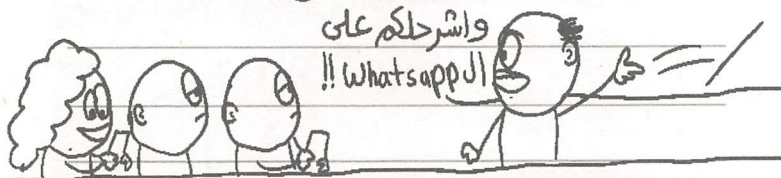 واشرحلكم على
ال whatsapp !!